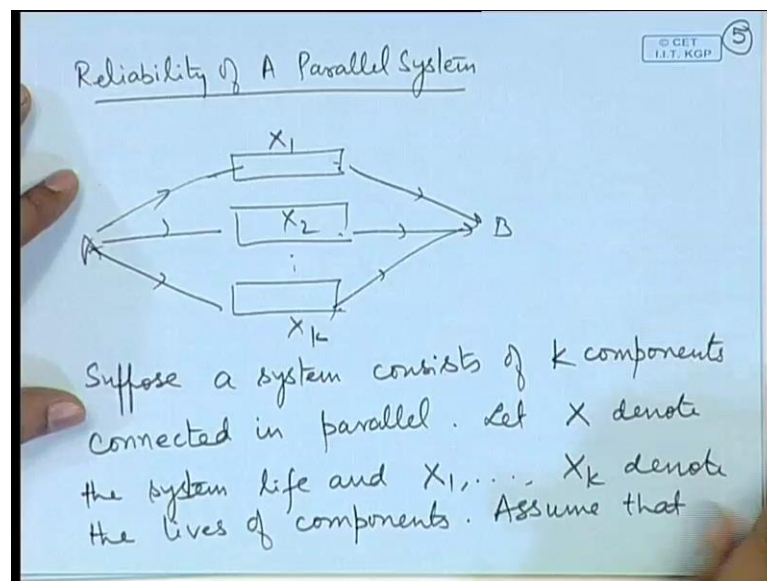 © CET
I.I.T. KGP
5
Reliability of A Parallel System
X1
A
X2
B
Xk
Suppose a system consists of k components
connected in parallel. Let X denote
the system life and X1, ...., Xk denote
the lives of components. Assume that